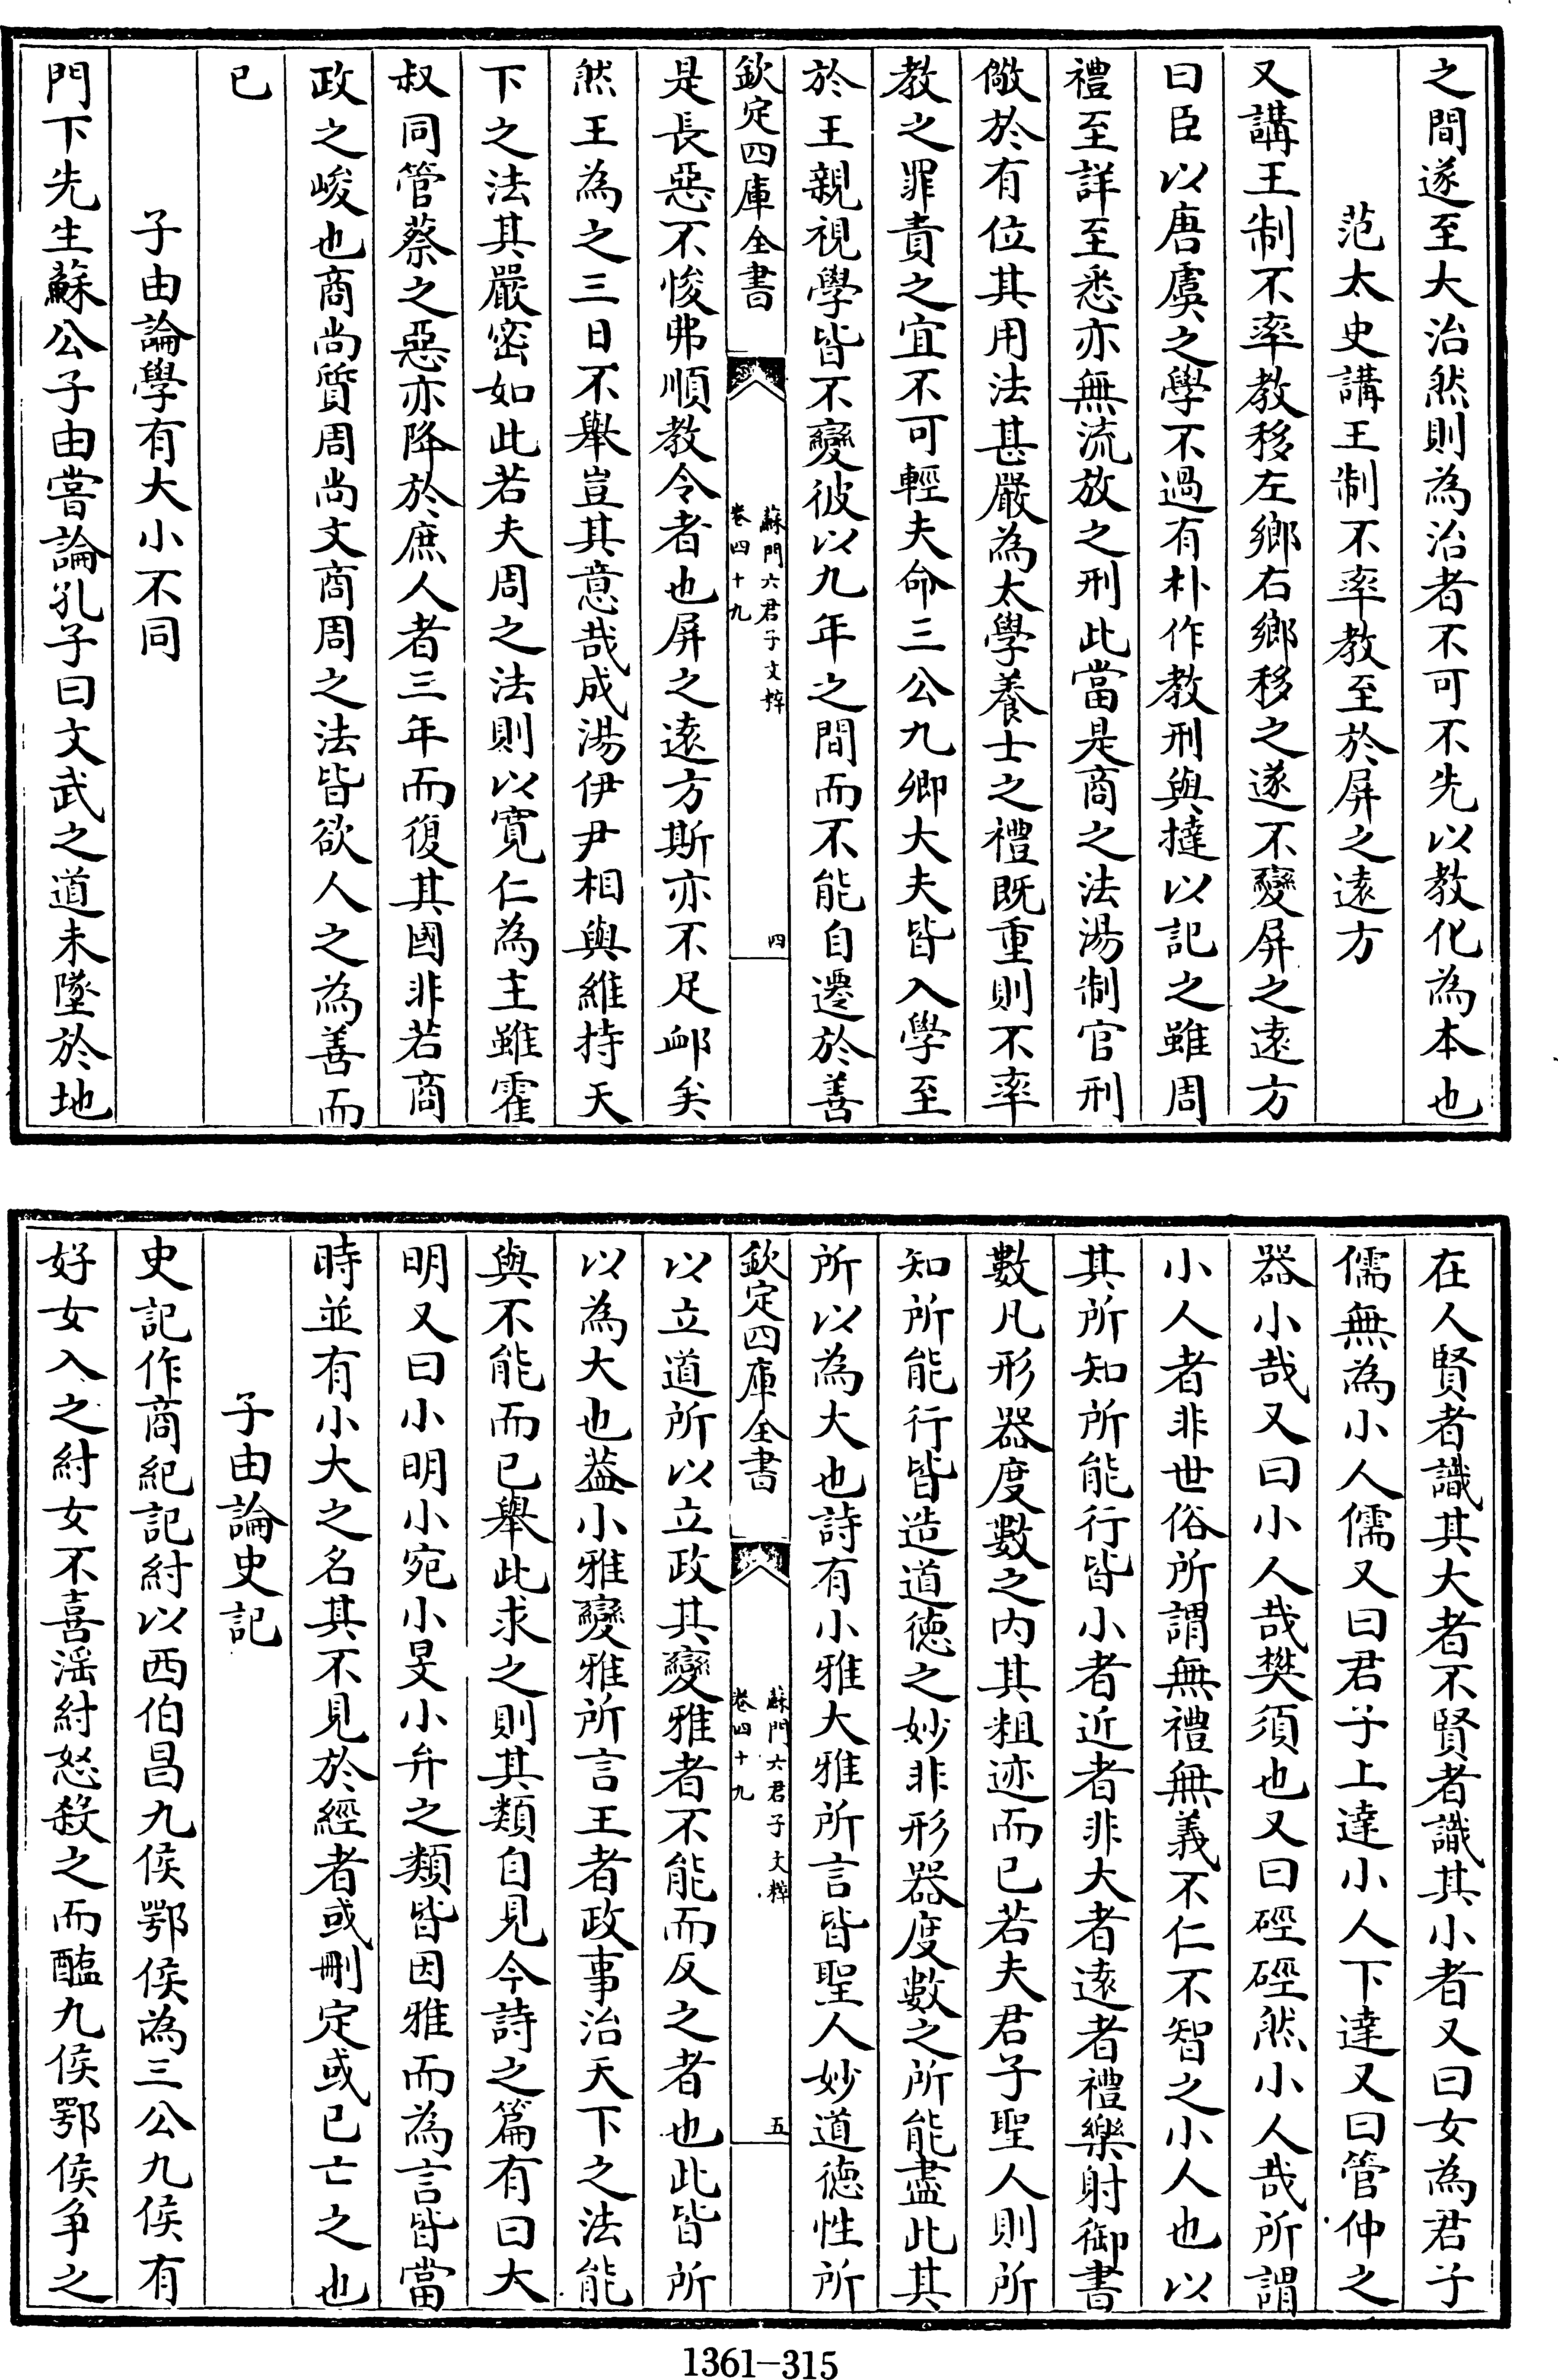 之間遂至大治然則為治者不可不先以教化為本也
范太史講王制不率教至於屏之遠方
又講王制不率教移左鄉右鄉移之遂不變屏之遠方
曰臣以唐虞之學不過有朴作教刑與撻以記之雖周
禮至詳至悉亦無流放之刑此當是商之法湯制官刑
儆於有位其用法甚嚴為太學養士之禮既重則不率
教之罪責之宜不可輕夫命三公九卿大夫皆入學至
於王親視學皆不變彼以九年之間而不能自遷於善
欽定四庫全書
蘇門六君子文粹
卷四十九
四
是長惡不悛弗順教令者也屏之遠方斯亦不足䘏矣
然王為之三日不舉豈其意哉成湯伊尹相與維持天
下之法其嚴密如此若夫周之法則以寛仁為主雖霍
叔同管蔡之惡亦降於庶人者三年而復其國非若商
政之峻也商尚質周尚文商周之法皆欲人之為善而
已
子由論學有大小不同
門下先生蘇公子由嘗論孔子曰文武之道未墜於地
在人賢者識其大者不賢者識其小者又曰女為君子
儒無為小人儒又曰君子上達小人下達又曰管仲之
器小哉又曰小人哉樊須也又曰硜硜然小人哉所謂
小人者非世俗所謂無禮無義不仁不智之小人也以
其所知所能行皆小者近者非大者遠者禮樂射御書
數凡形器度數之内其粗迹而已若夫君子聖人則所
知所能行皆造道徳之妙非形器度數之所能盡此其
所以為大也詩有小雅大雅所言皆聖人妙道徳性所
欽定四庫全書
蘇門六君子文粹
卷四十九
五
以立道所以立政其變雅者不能而反之者也此皆所
以為大也葢小雅變雅所言王者政事治天下之法能
與不能而已舉此求之則其類自見今詩之篇有曰大
明又曰小明小宛小旻小弁之類皆因雅而為言皆當
時並有小大之名其不見於經者或刪定或已亡之也
子由論史記
史記作商紀記紂以西伯昌九侯鄂侯為三公九侯有
好女入之紂女不喜淫紂怒殺之而醢九侯鄂侯争之
1361-315